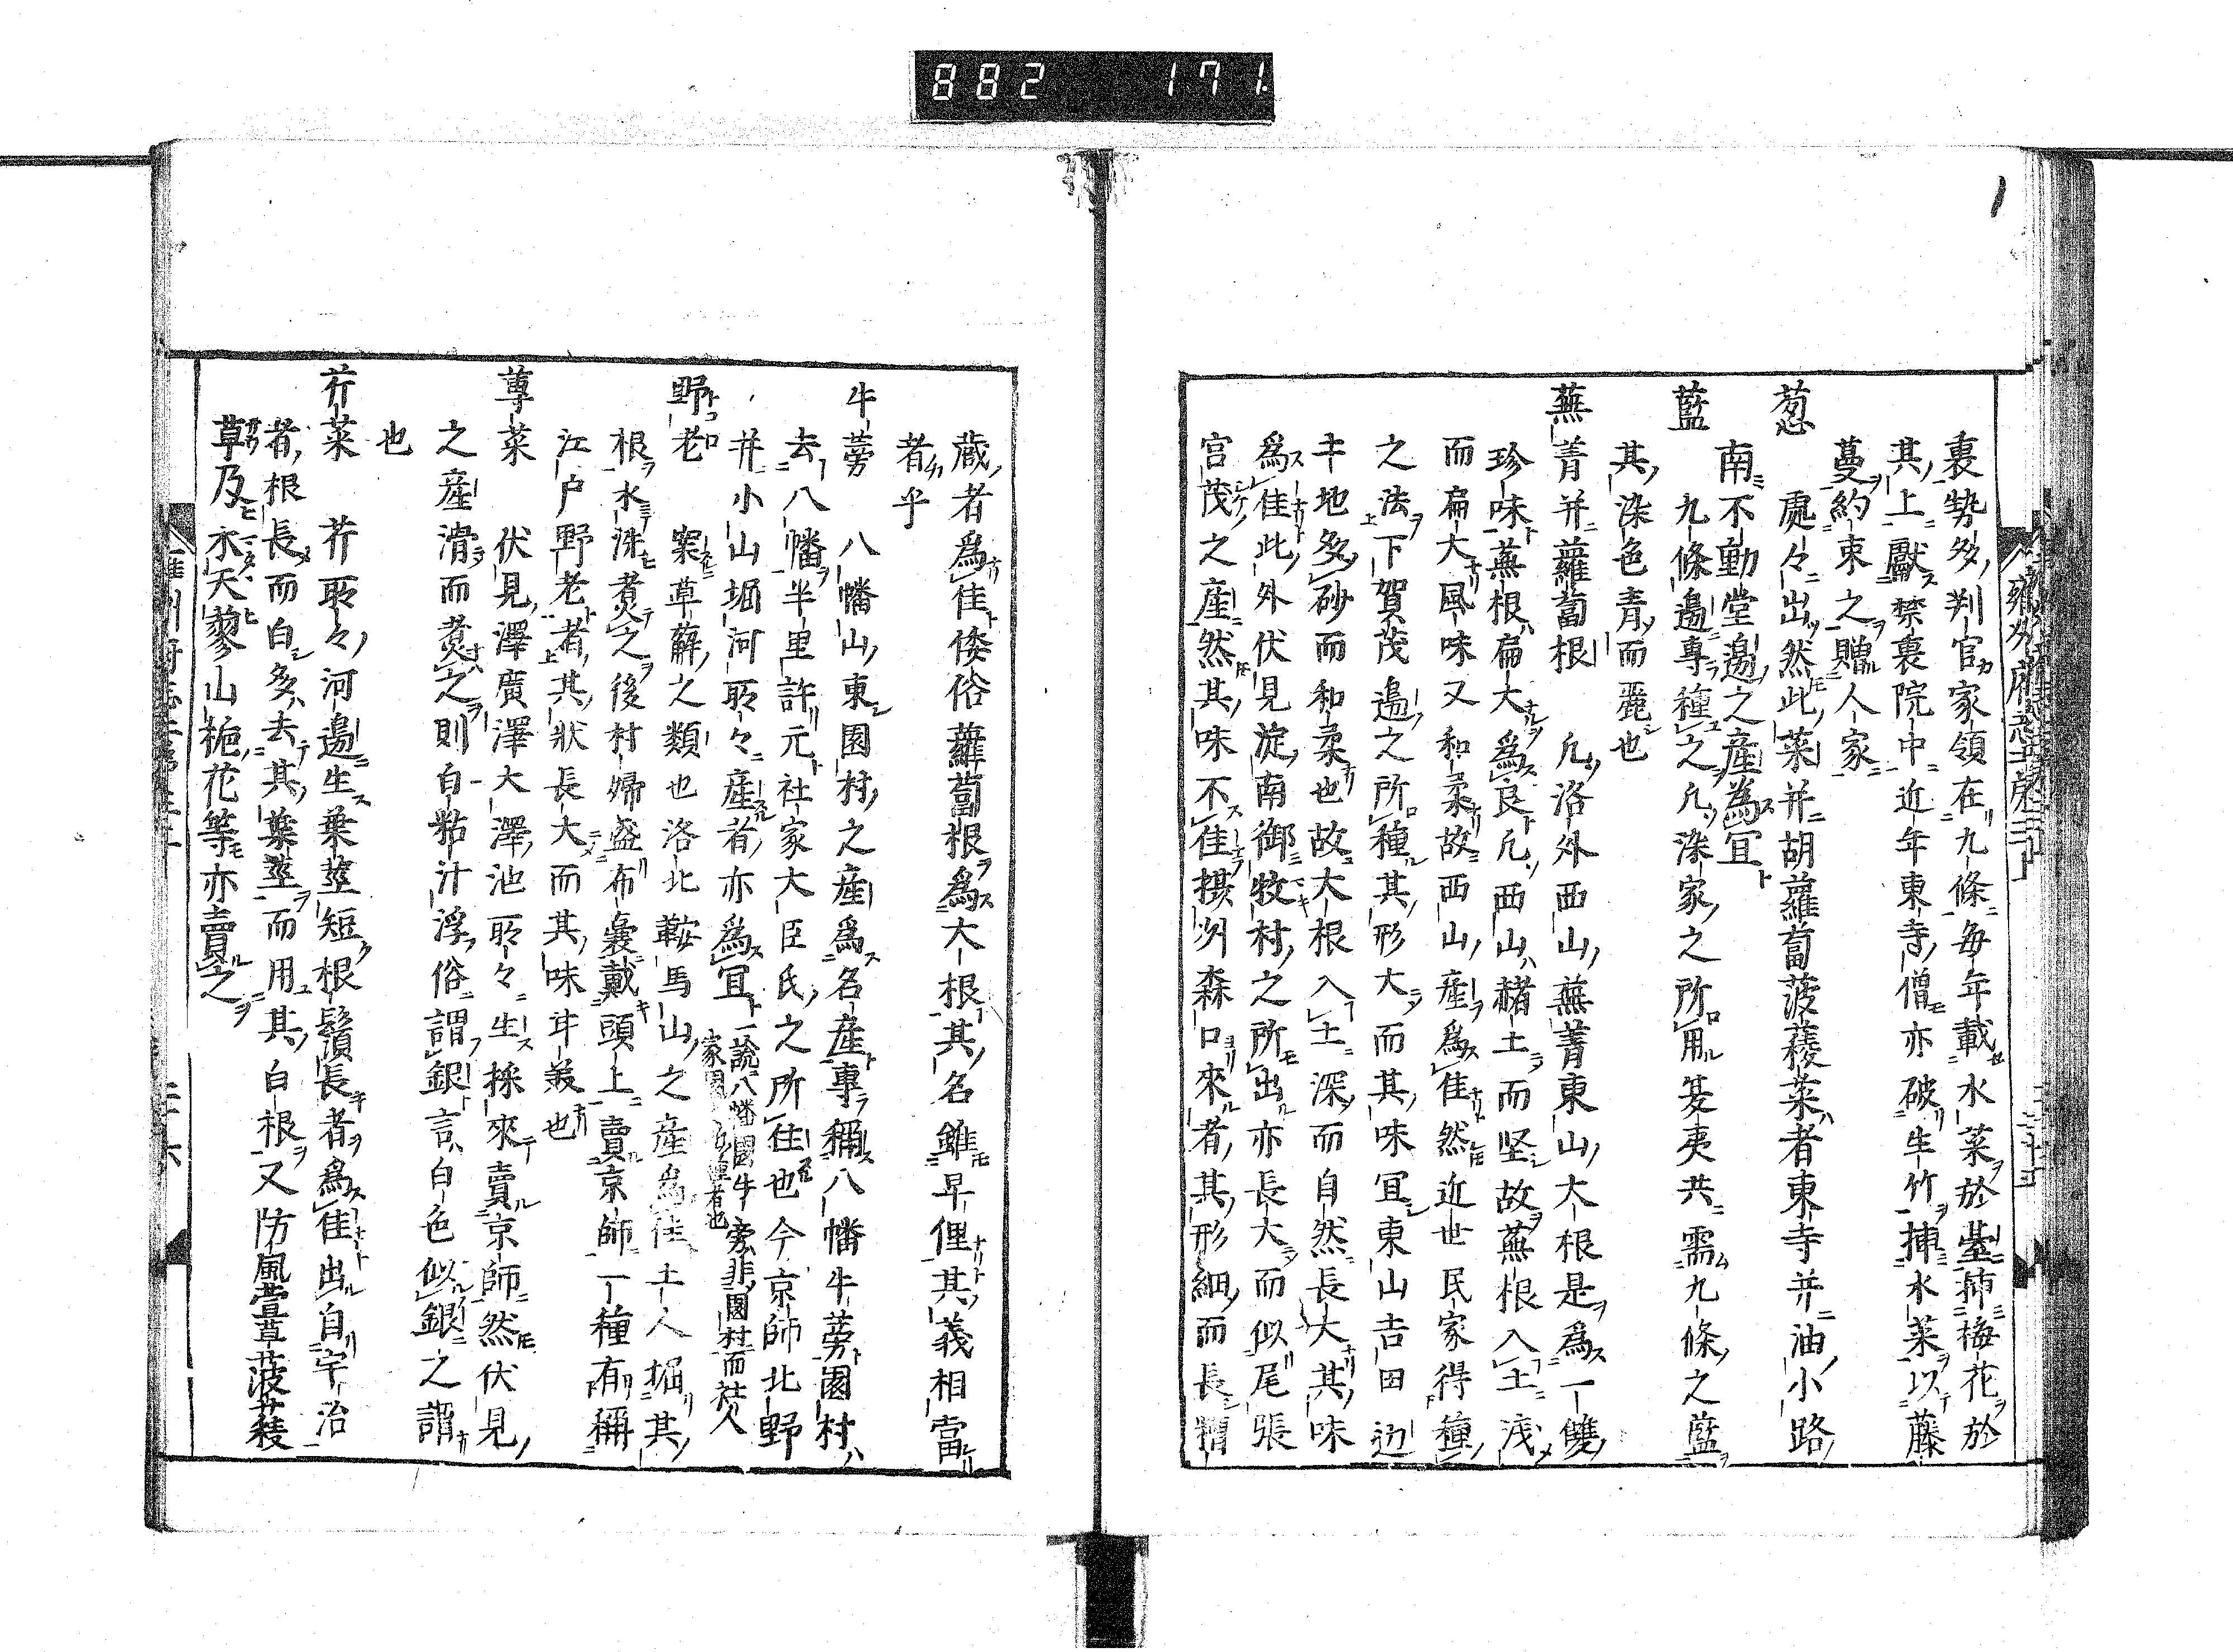 882 171
裏勢多判官家領在九條毎年載水菜於臺挿梅花於
其上獻禁裏院中近年東寺僧亦破生竹挿水菜以藤
蔓約束之贈人家
葱 處々出然此菜并胡蘿蔔菠薐菜者東寺并油小路
南不動堂邉之産為冝
藍 九條邉專種之凢染家之所用芟夷共需九條之藍
其染色青而麗也
蕪菁并蘿蔔根 凢洛外西山蕪菁東山大根是爲一雙
珍味蕪根扁大爲良凢西山赭土而坚故蕪根入土淺
而扁大風味又和柔故西山産爲佳然近世民家得種
之法下賀茂邉之所種其形大而其味冝東山吉田辺
土地多砂而和柔也故大根入土深而自然長大其味
爲佳此外伏見淀南御牧村之所出亦長大而似尾張
宮茂之産然其味不佳摂州森口來者其形細而長糟
藏者爲佳倭俗蘿蔔根爲大根其名雖早俚其義相當
者乎
牛蒡 八幡山東園村之産爲名産專稱八幡牛蒡園村
去八幡半里許元社家大臣氏之所住也今京師北野
并小山堀河耶々産者亦爲冝一說八幡國牛蒡非園村而社人
家園
野老 案草薢之類也洛北鞍馬山之産爲佳土人堀其
根水洙煮之後村婦盛布嚢戴頭上賣京師一種有稱
江户野老者其狀長大而其味井羙也
蓴菜 伏見澤廣澤大澤池耶々生採來賣京師然伏見
之産滑而煮之則白黏汁浮俗謂銀言白色似銀之謂
也
芥菜 芥耶々河邉生葉莖短根鬚長者爲佳出自宇治
者根長而白多去其葉莖而用其白根又防風萱草菠薐
草及木天蓼山梔花等亦賣之